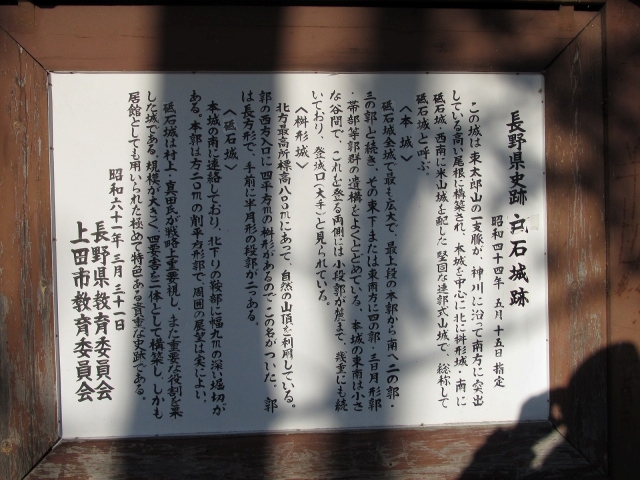 長野県史跡 戸石城跡
昭和四十四年 五月十五日 指定
この城は東太郎山の一支脈が、神川に沿って南方に突出
している高い尾根に構築され、本城を中心に北に枡形城・南に
砥石城・西南に米山城を配した堅固な連郭式山城で、総称して
砥石城と呼ぶ。
〈本城〉
砥石城全城で最も広大で、最上段の本郭から南へ二の郭・
三の郭と続き、その東下または東南方に四の郭・三日月形郭
・帯郭等郭群の遺構をよくとどめている。本城の東南は小さ
な谷間で、これを登る両側には小段郭が幾まで、幾重にも続
いており、登城口(大手)と見られている。
〈枡形城〉
北方最高所標高八〇〇mにあって、自然の山頂を利用している。
郭の西方入口に四平方mの枡形があるのでこの名がついた。郭
は長方形で、手前に半月形の段郭が二つある。
〈砥石城〉
本城の南に連絡しており、北下りの鞍部に幅九mの深い堀切が
ある。本郭は方二〇mの削平方形郭で周囲の展望は実によい。
砥石城は村上・真田氏が戦略上重要視し、また重要な役割を果
した城である。規模が大きく、四要害を一体として構築し、しかも
居館としても用いられた極めて特色ある貴重な史跡である。
昭和六十一年 三月 三十一日
長野県教育委員会
上田市教育委員会